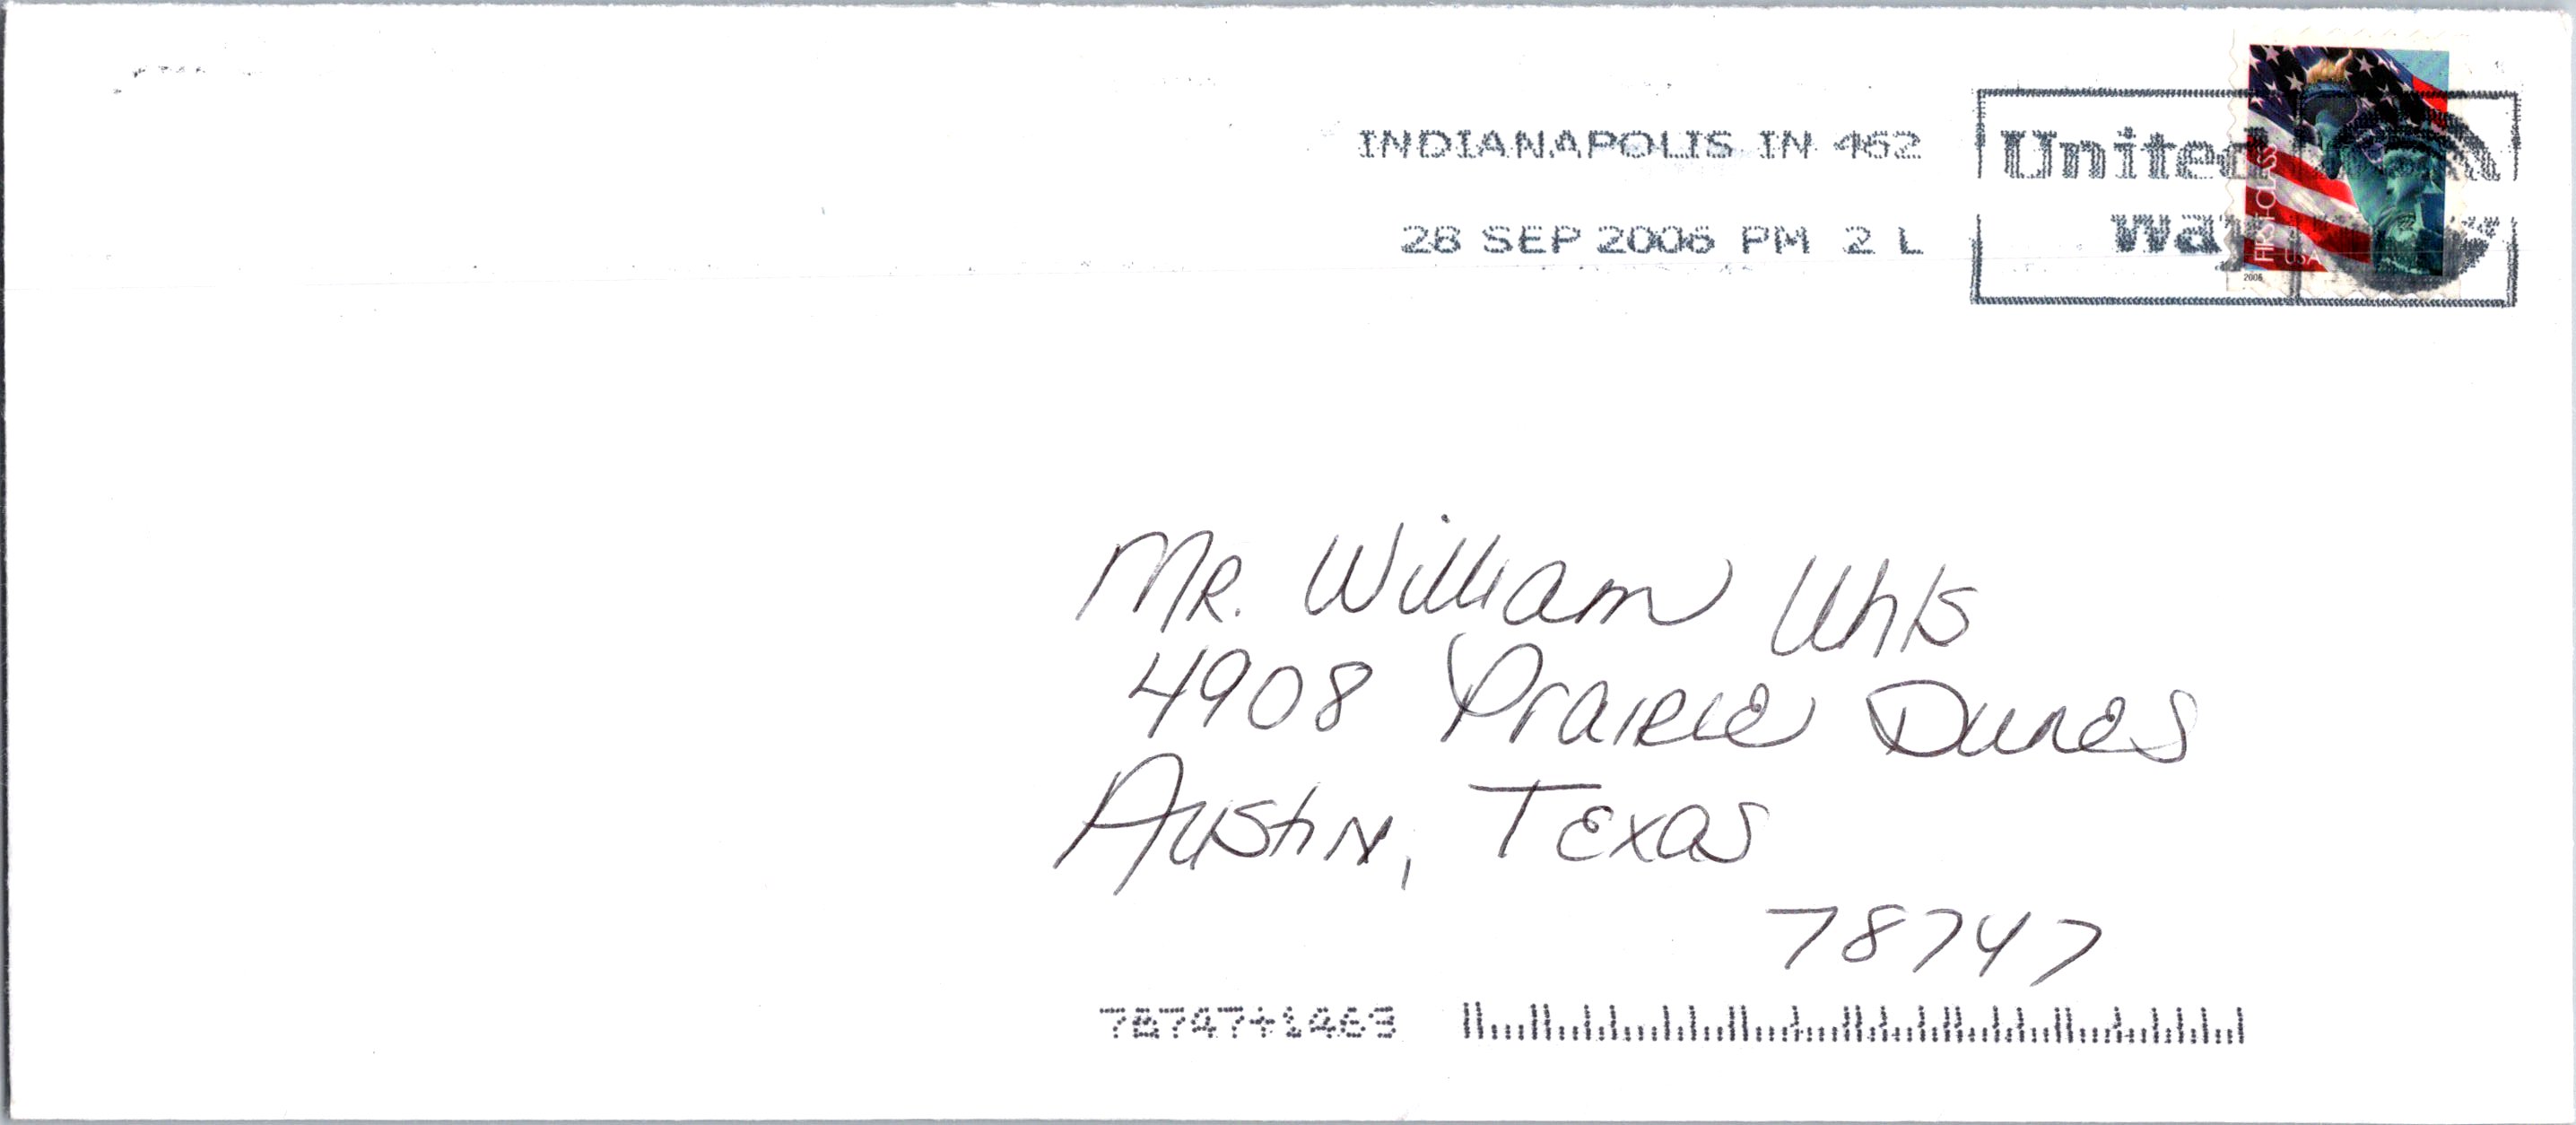 INDIANAPOLIS IN 462
28 SEP 2006 PM 2 L
United
way
FIRST-CLASS
USA
2006
MR. William Uhls
4908 Prairie Dunes
Austin, Texas
78747
78747+1463